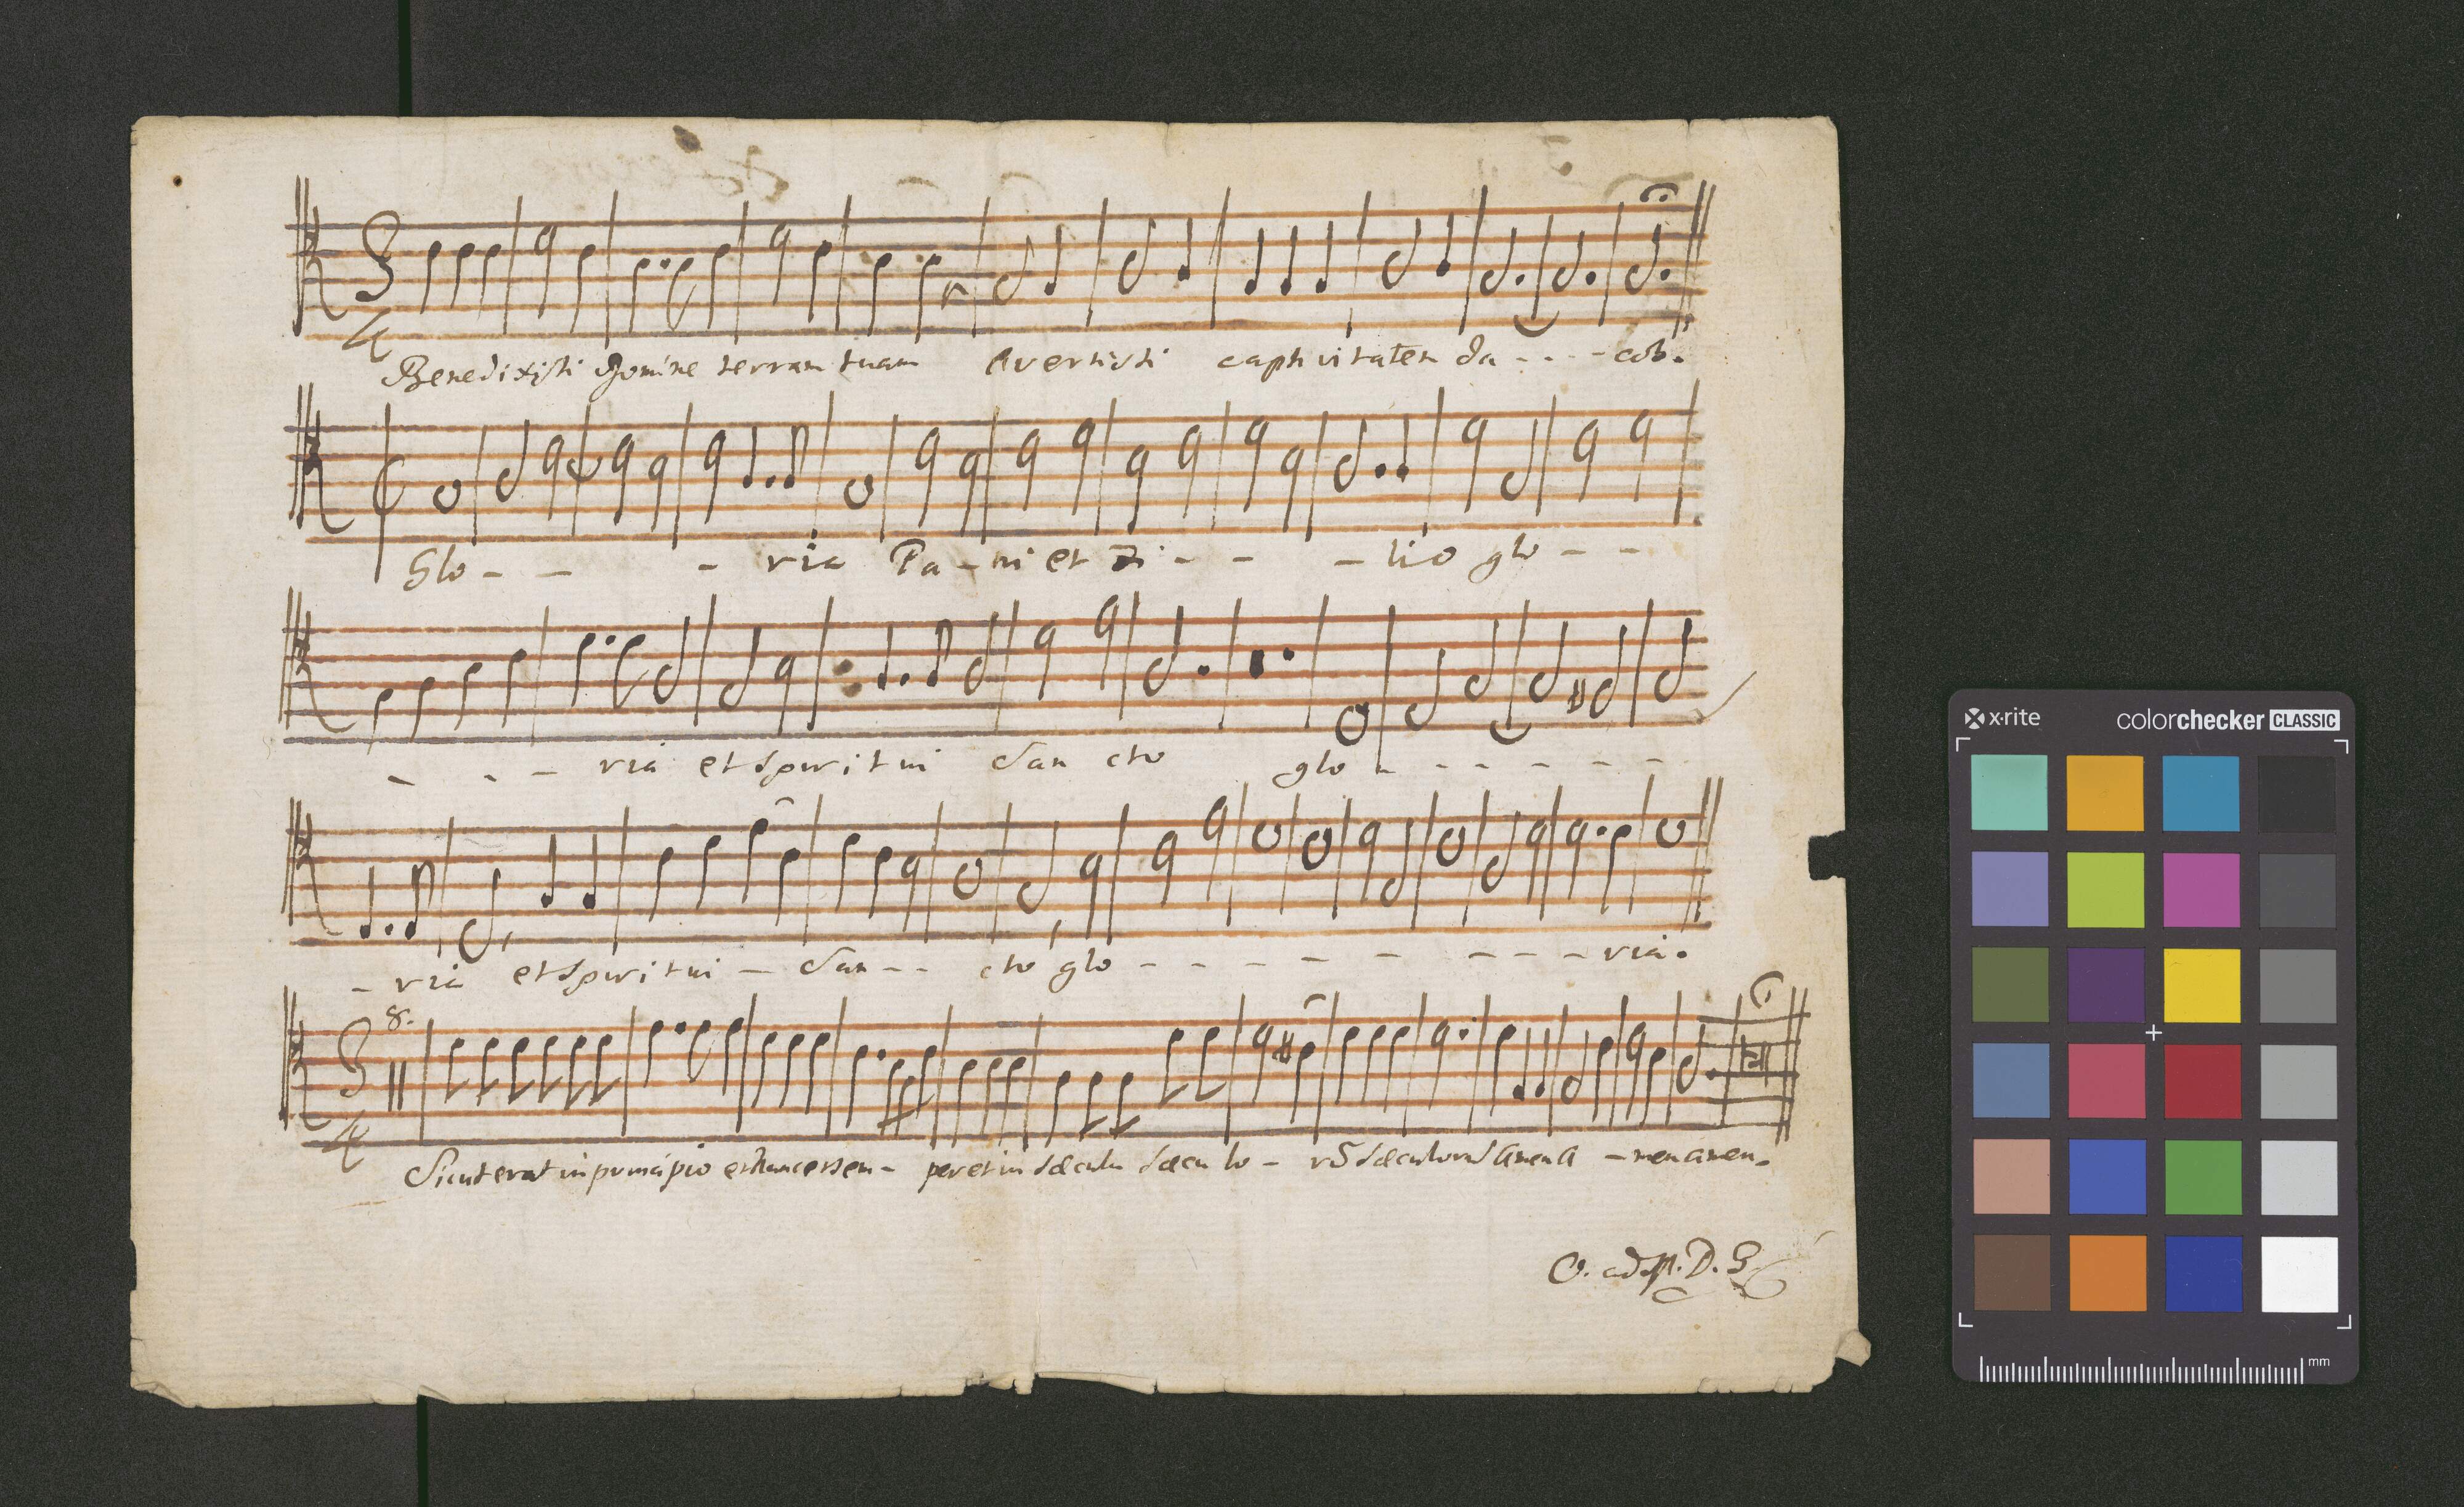 Benedixisti Domine terram tuam Avertisti captivitatem Ja - - - - cob.
Glo - - - ria Pa - tri et Fi - - - lio glo - -
- - - ria et Spiritui San cto glo - - - - - -
- ria et Spiritui - San - - cto glo - - - - - - - - - ria.
8.
Sicut erat in principio et nunc et sem - per et in sæcula sæcu lo - rū sæculorū amen a - men amen.
O. ad M. D. G
x-rite
colorchecker CLASSIC
mm